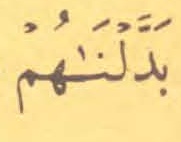 بَدَّلْنَٰهُمْ